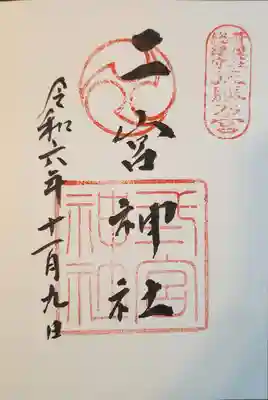 二宮神社
令和六年十一月九日
弍宮
神社